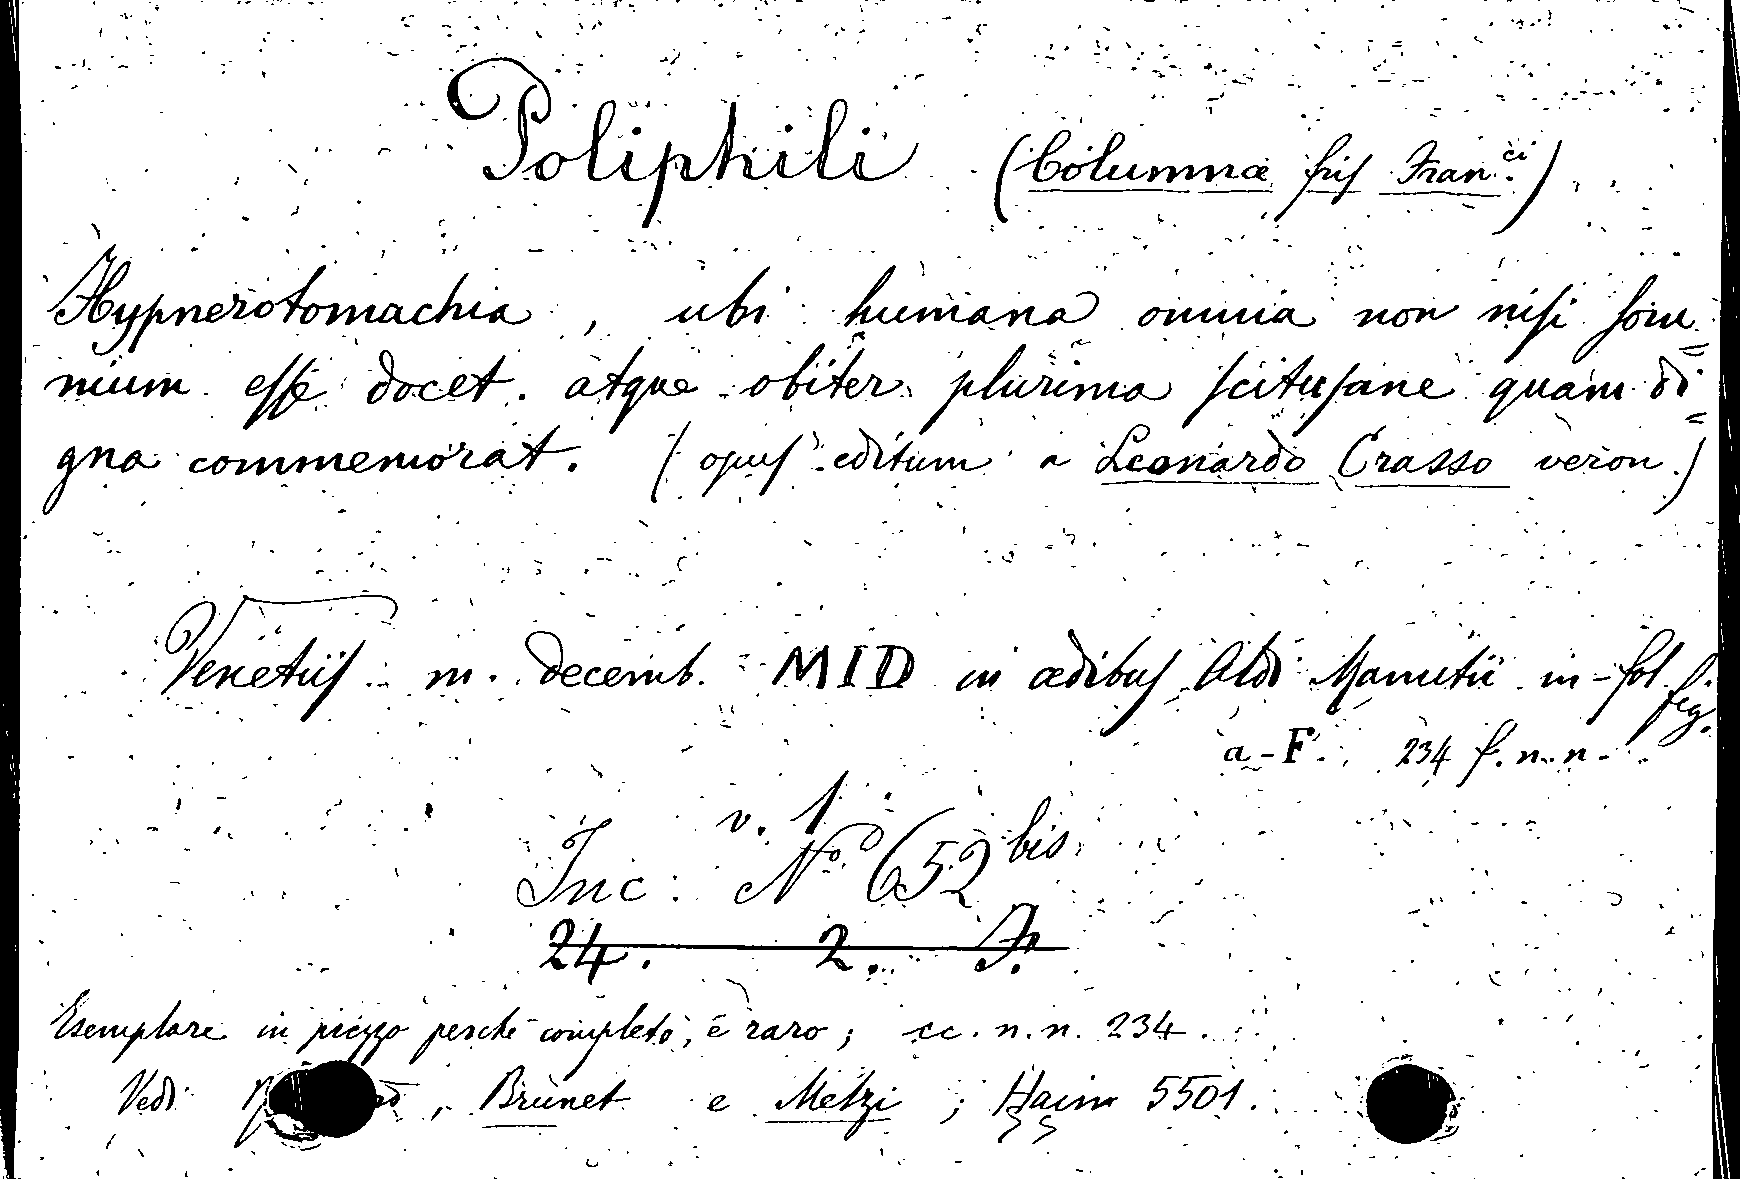 Poliphili (Columnæ fris Fran.ci)
Hypnerotomachia, ubi humana omnia non nisi som=
nium esse docet. atque obiter plurima scitu sane quam di=
gna commemorat. (opus editum a Leonardo Crasso veron.)
Venetiis m. decemb. MID in ædibus Aldi Manutii in-fol. fig.
a-F. 234 f. n. n.
v. 1
Inc: No. 652 bis
24. 2. P.
Esemplare in prezzo perchè completo, è raro; cc. n. n. 234.
Vedi , Brunet e Melzi ; Hain 5501.